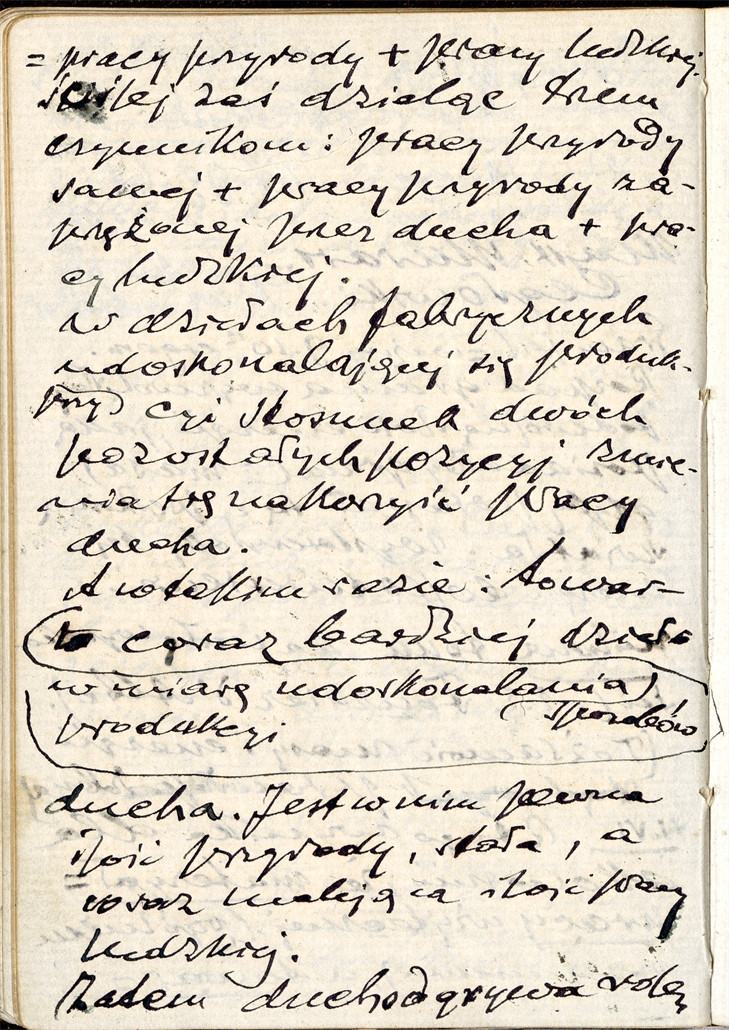 = pracy przyrody + pracy ludzkiej.
Ściślej zaś dzieląc trzem
czynnikom: pracy przyrody
samej + pracy przyrody za-
przężonej przez ducha + pra-
cy ludzkiej.
w dziełach fabrycznych
udoskonalającej się produk-
przy cyi stosunek dwóch
pozostałych pozycyj zmie-
nia się na korzyść pracy
ducha.
A w takim razie: towar –
to coraz bardziej dzieło
w miarę udoskonalania
sposobów
produkcyi
ducha. Jest w nim pewna
ilość przyrody, stała, a
coraz malejąca ilość pracy
ludzkiej.
Zatem duch odgrywa rolę